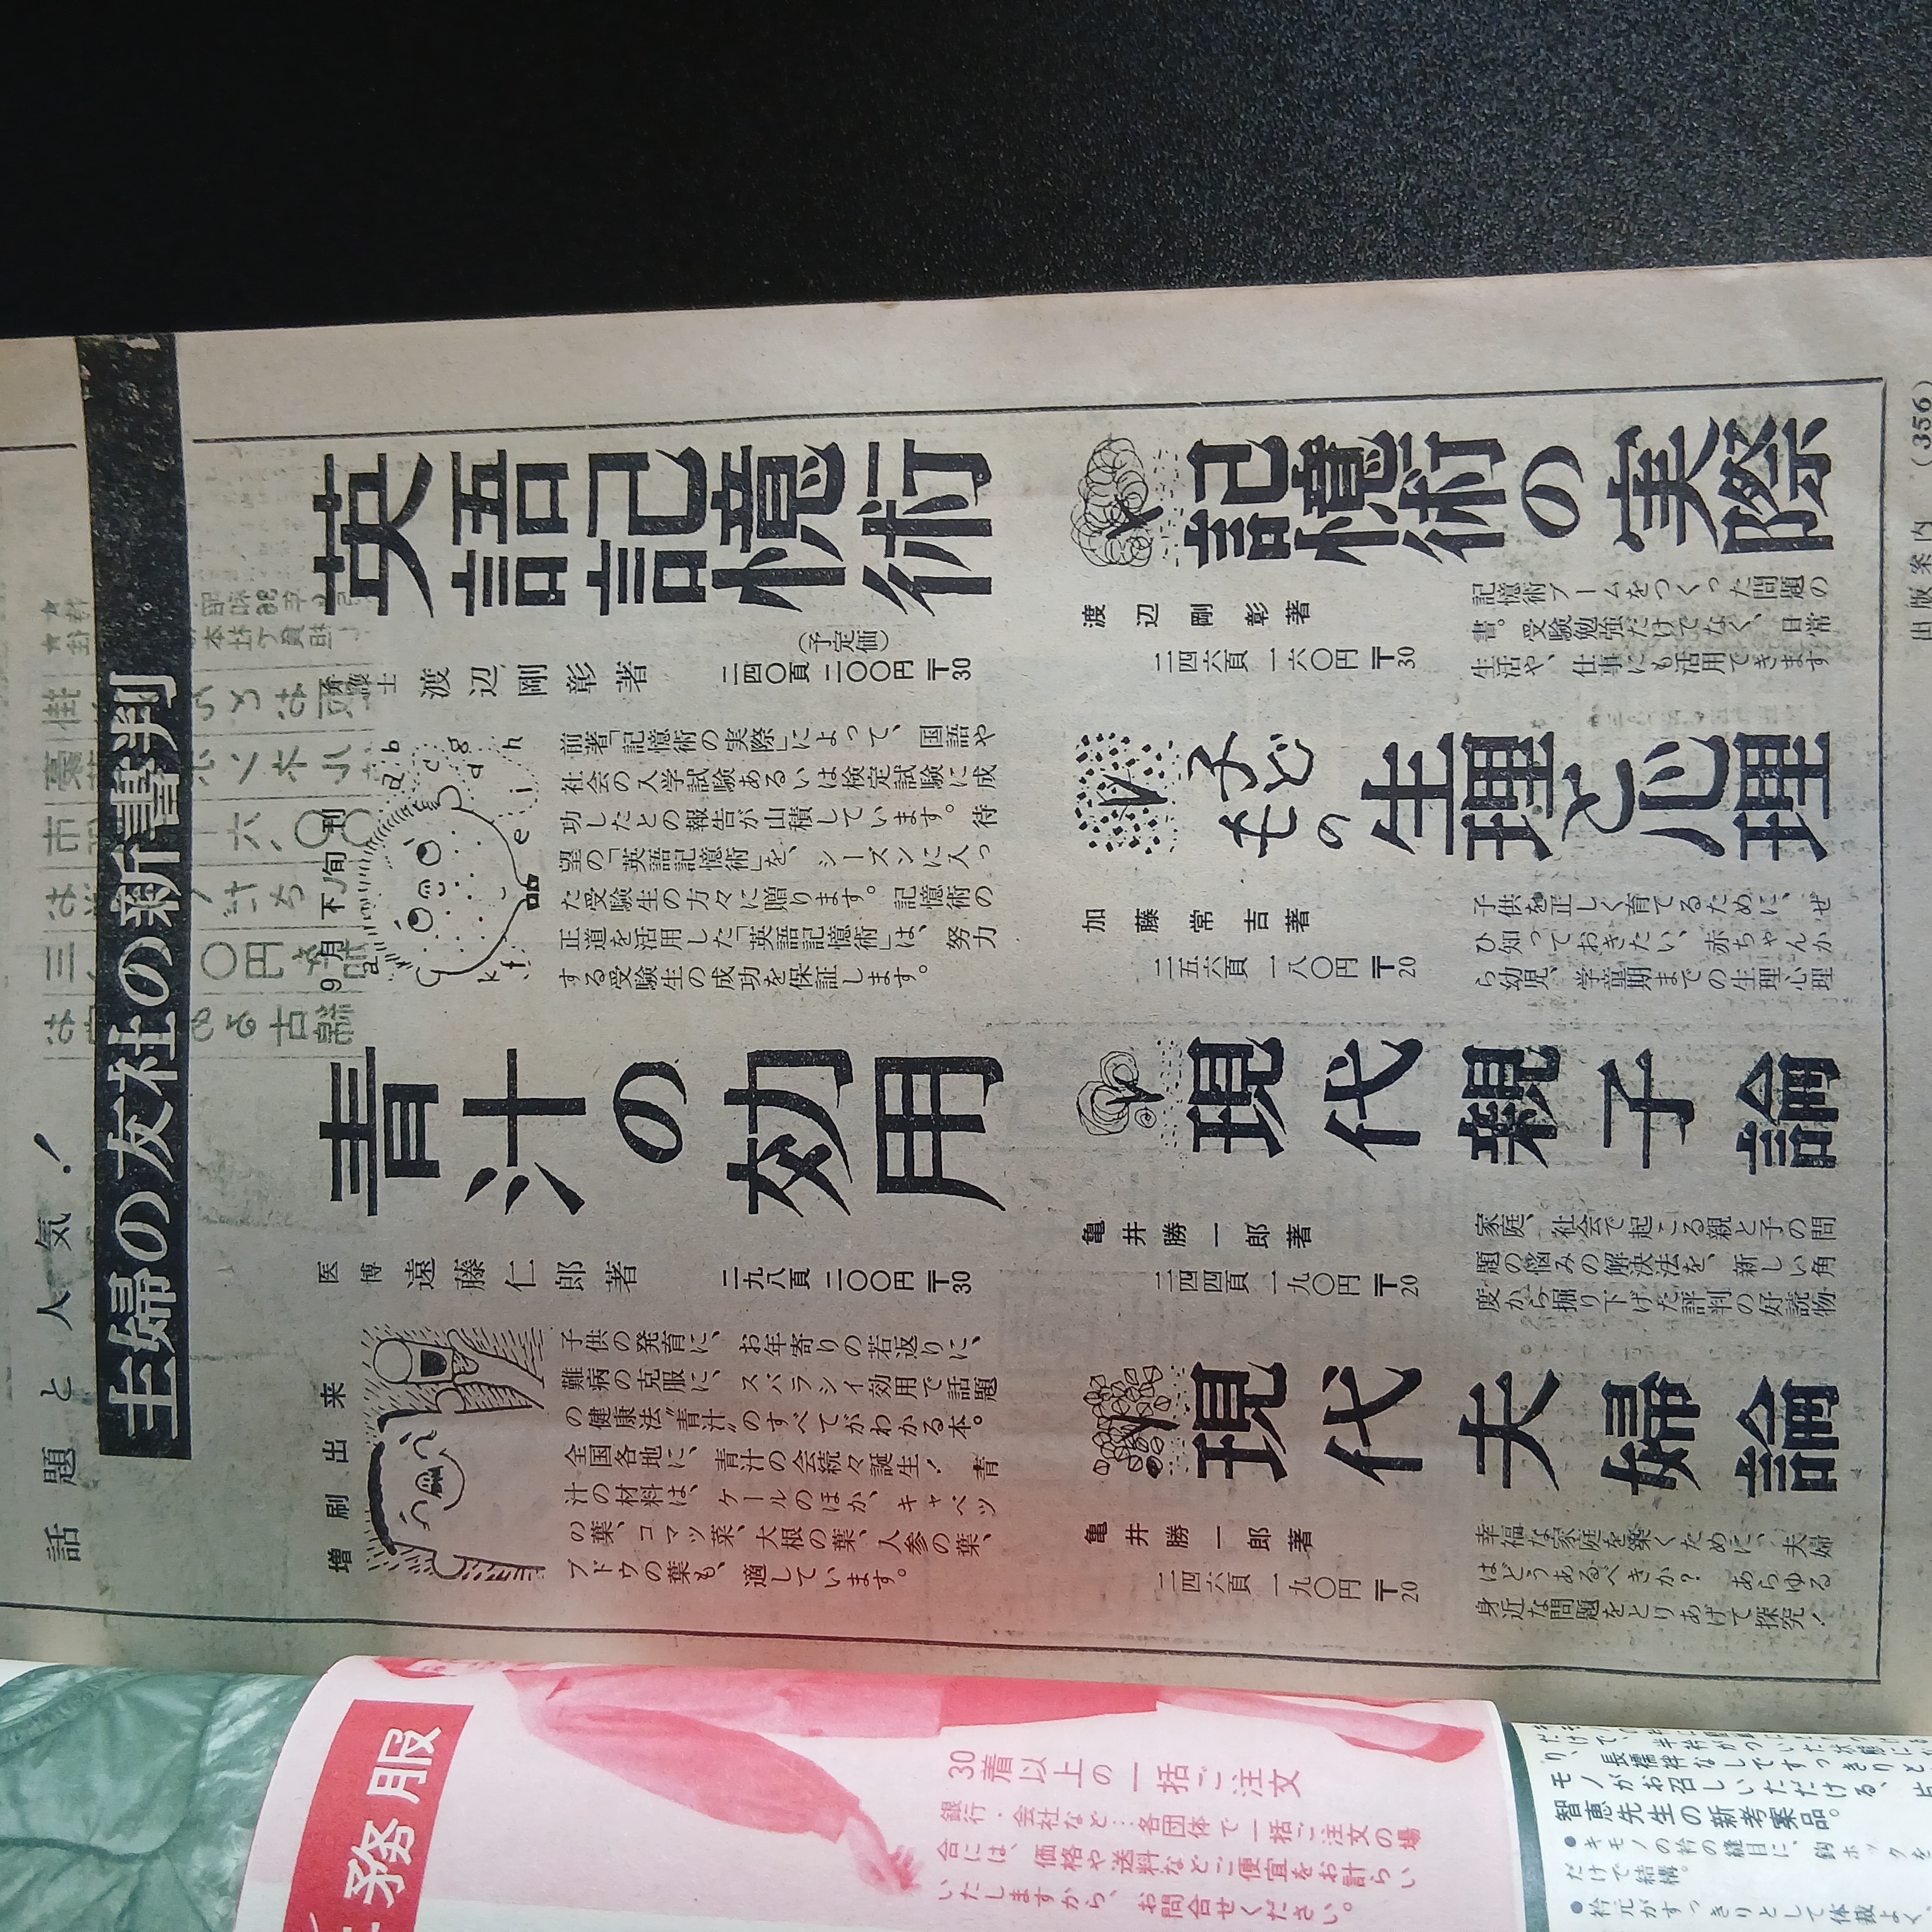 話題と人気！
主婦の友社の新書判
英語記憶術
9月下旬刊
弁護士
渡辺剛彰著
(予定価)
二四〇頁 二〇〇円 〒30
a b c d g h i e f k
前著「記憶術の実際」によって、国語や
社会の入学試験あるいは検定試験に成
功したとの報告が山積しています。待
望の「英語記憶術」を、シーズンに入っ
た受験生の方々に贈ります。記憶術の
正道を活用した「英語記憶術」は、努力
する受験生の成功を保証します。
青汁の効用
医博
遠藤仁郎著
二九八頁 二〇〇円 〒30
増刷出来
子供の発育に、お年寄りの若返りに、
難病の克服に、スバラシイ効用で話題
の健康法“青汁”のすべてがわかる本。
全国各地に、青汁の会続々誕生！ 青
汁の材料は、ケールのほか、キャベツ
の葉、コマツ菜、大根の葉、人参の葉、
ブドウの葉も、適しています。
記憶術の実際
渡辺剛彰著
二四六頁 一六〇円 〒30
記憶術ブームをつくった問題の
書。受験勉強だけでなく、日常
生活や、仕事にも活用できます
子どもの生理と心理
加藤常吉著
二五六頁 一八〇円 〒20
子供を正しく育てるために、ぜ
ひ知っておきたい、赤ちゃんか
ら幼児、学童期までの生理心理
現代親子論
亀井勝一郎著
二四四頁 一九〇円 〒20
家庭、社会で起こる親と子の問
題の悩みの解決法を、新しい角
度から掘り下げた評判の好読物
現代夫婦論
亀井勝一郎著
二四六頁 一九〇円 〒20
幸福な家庭を築くために、夫婦
はどうあるべきか？ あらゆる
身近な問題をとりあげて探究！
出版案内 (356)
務服
30着以上の一括ご注文
銀行・会社など…各団体で一括ご注文の場
合には、価格や送料などご便宜をお計らい
いたしますから、お問合せください。
長襦袢なしですっきりと
モノがお召しいただける、
智恵先生の新考案品。
●キモノの衿の縫目に、鈎ホックを
だけで結構。
●衿元がすっきりとして体裁よく、